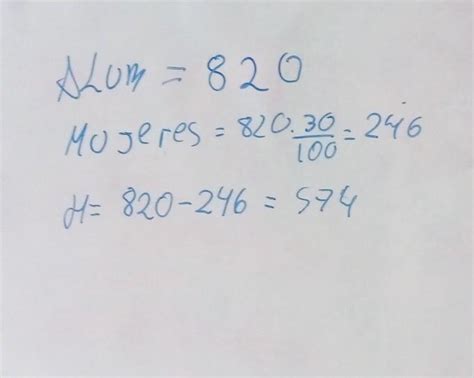 ALUM = 820
MUJeres = 820.30/100 = 246
H = 820-246 = 574